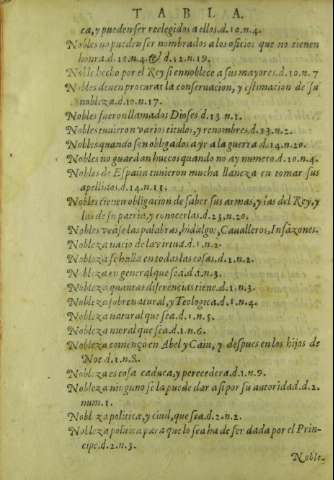 TABLA.
ca, y pueden ser reelegidos a ellos. d.10.n.4.
Nobles no pueden ser nombrados a los oficios que no tienen
honra. d.12.n.4. & d.12.n.19.
Noble hecho por el Rey si ennoblece a sus mayores. d.10.n.7
Nobles deuen procurar la conseruacion, y estimacion de su
nobleza. d.10.n.17.
Nobles fueron llamados Dioses. d.13.n.1.
Nobles tuuieron varios titulos, y renombres. d.13.n.2.
Nobles quando son obligados a yr a la guerra. d.14.n.20.
Nobles no guardan huecos quando no ay numero. d.10.n.4.
Nobles de España tuuieron mucha llaneza en tomar sus
apellidos. d.14.n.13.
Nobles tienen obligacion de saber sus armas, y las del Rey, y
las de su patria, y conocerlas. d.15.n.20.
Nobles vease las palabras, hidalgo, Caualleros, Infãzones.
Nobleza nacio de la virtud. d.1.n.2.
Nobleza se halla en todas las cosas. d.1.n.2.
Nobleza en general que sea. d.1.n.3.
Nobleza quantas diferencias tiene. d.1.n.3.
Nobleza sobrenatural, y Teologica. d.1.n.4.
Nobleza natural que sea. d.1.n.5.
Nobleza moral que sea. d.1.n.6.
Nobleza començo en Abel y Cain, y despues en los hijos de
Noe. d.1.n.8.
Nobleza es cosa caduca, y perecedera. d.1.n.9.
Nobleza ninguno se la puede dar a si por su autoridad. d.2.
num.1.
Nobleza politica, y ciuil, que sea. d.2.n.2.
Nobleza politica para que lo sea ha de ser dada por el Prin-
cipe. d.2.n.3.
Noble-